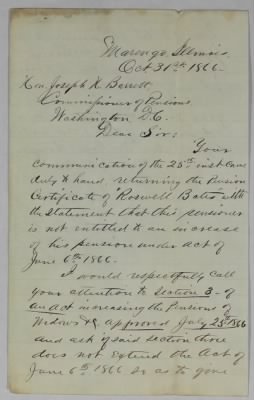 Marengo, Illinois.
Oct 31st 1866-
Hon Joseph H. Barrett
Commissioner of Pensions,
Washington D.C.
Dear Sir:
Your
communication of the 25th inst came
duly to hand, returning the Pension
Certificate of Roswell Bates with
the statement that this pensioner
is not entitled to an increase
of his pension under act of
June 6th 1866-
I would respectfully call
your attention to Section 3- of
an Act increasing the Pensions of
Widows &c, approved July 25th 1866
and ask if said section three
does not extend the Act of
June 6th 1866 so as to give